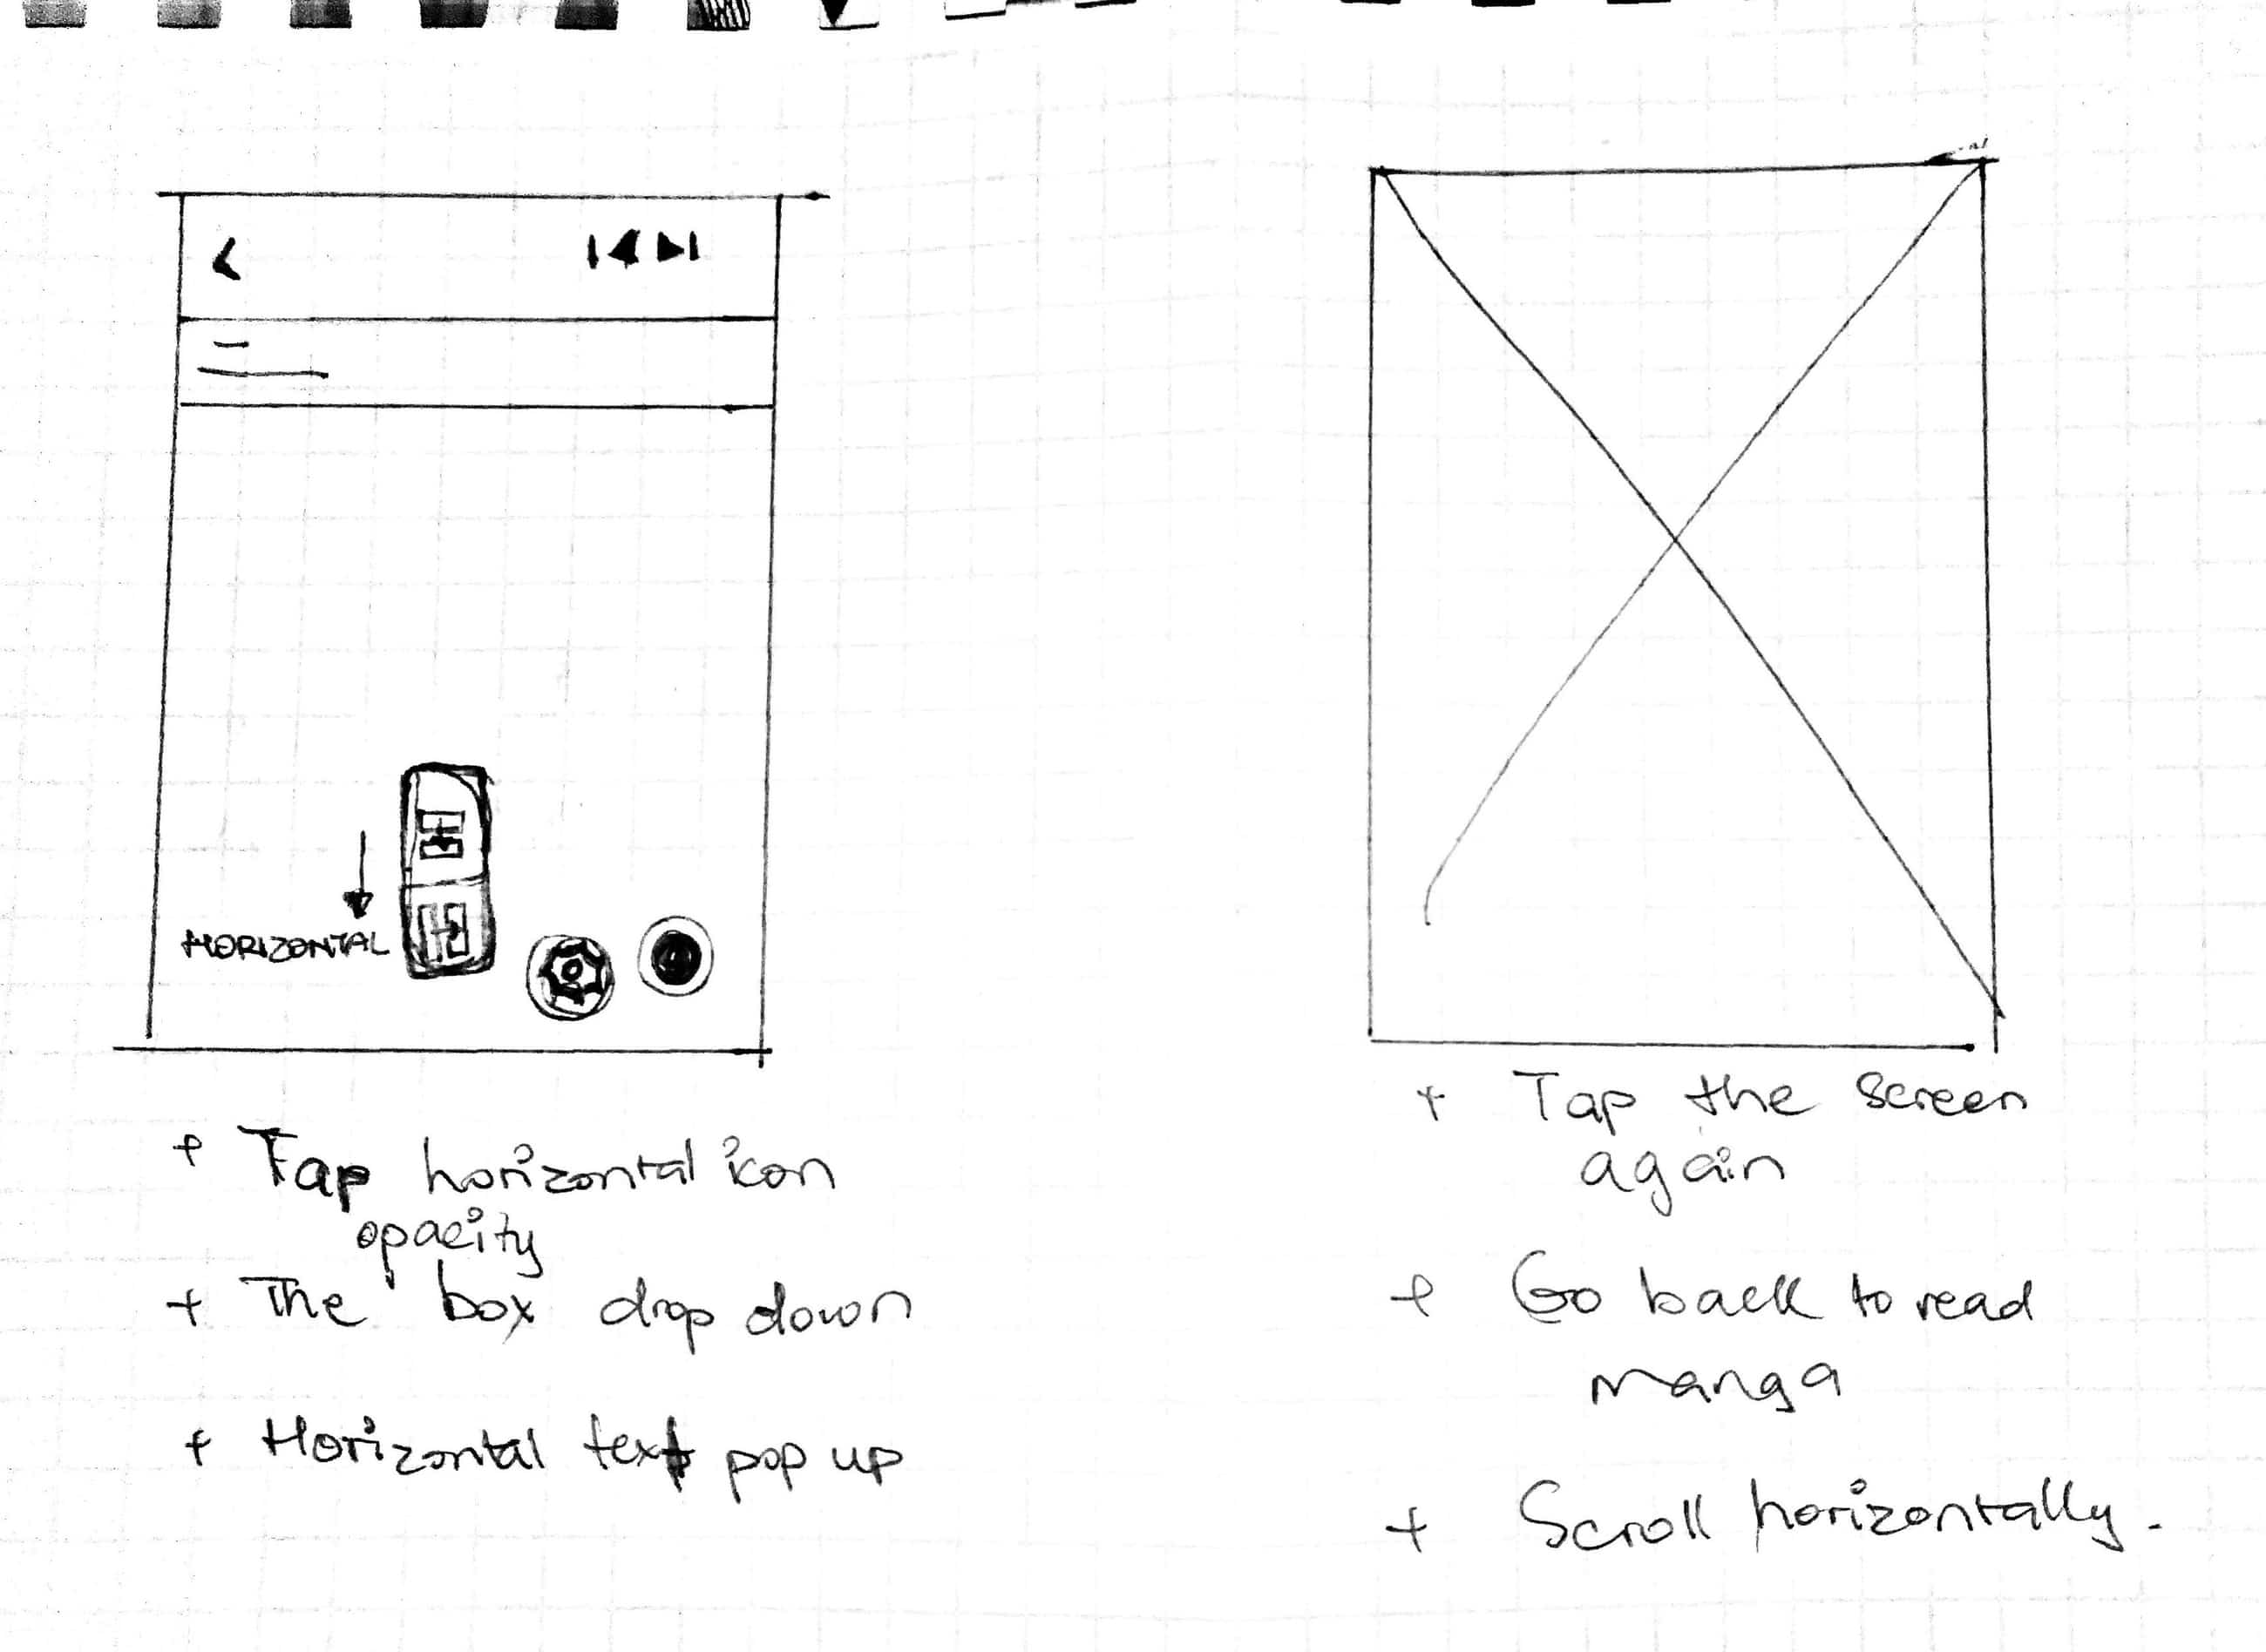 HORIZONTAL
+ Tap horizontal icon
opacity
+ The box drop down
+ Horizontal text pop up
+ Tap the screen
again
+ Go back to read
manga
+ Scroll horizontally.